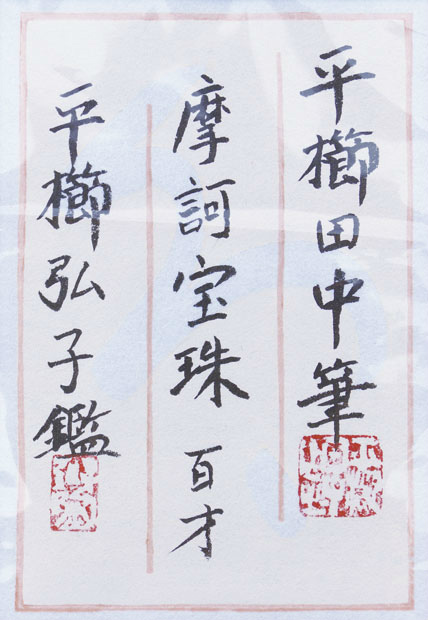 平櫛田中筆
摩訶宝珠 百才
平櫛弘子鑑